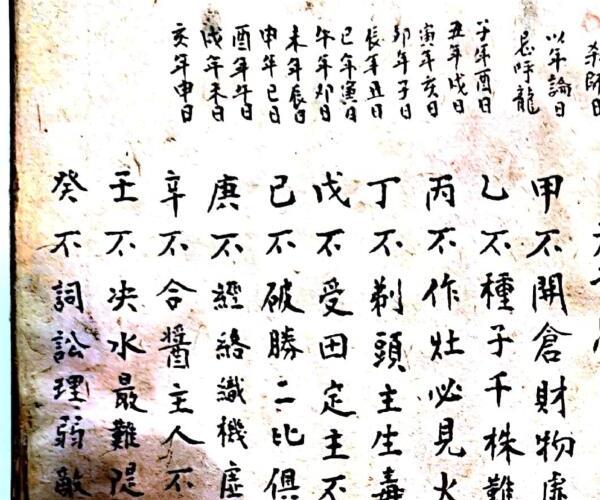 杀師日
以年論日
忌呼龍
子年酉日
丑年戌日
寅年亥日
卯年子日
辰年丑日
巳年寅日
午年卯日
未年辰日
申年巳日
酉年午日
戌年未日
亥年申日
甲不開倉財物虛
乙不種子千株難
丙不作灶必見火
丁不剃頭主生毒
戊不受田定主不
己不破勝二比俱
庚不經絡織機虛
辛不合醬主人不
壬不决水最難隄
癸不詞訟理弱敵